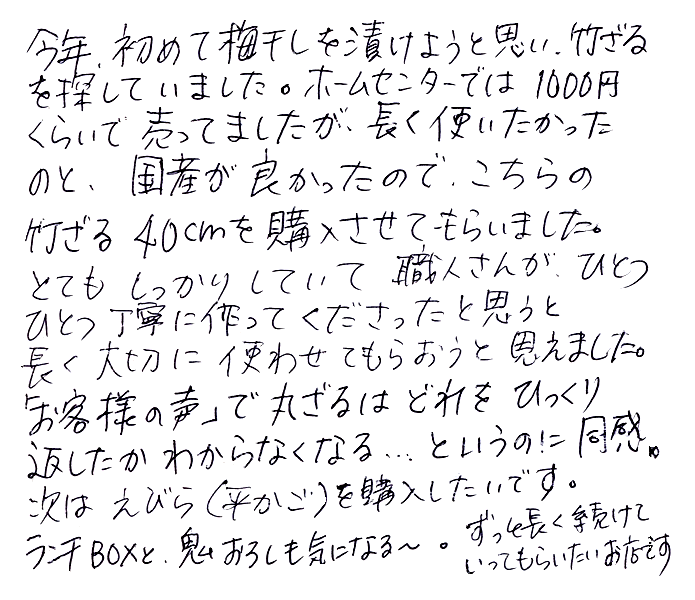 今年、初めて梅干しを漬けようと思い、竹ざる
を探していました。ホームセンターでは1000円
くらいで売ってましたが、長く使いたかった
のと、国産が良かったので、こちらの
竹ざる40cmを購入させてもらいました。
とてもしっかりしていて職人さんが、ひとつ
ひとつ丁寧に作ってくださったと思うと
長く大切に使わせてもらおうと思えました。
「お客様の声」で丸ざるはどれをひっくり
返したかわからなくなる…というのに同感。
次はえびら(平かご)を購入したいです。
ランチBOXと、鬼おろしも気になる〜。
ずっと長く続けて
いってもらいたいお店です